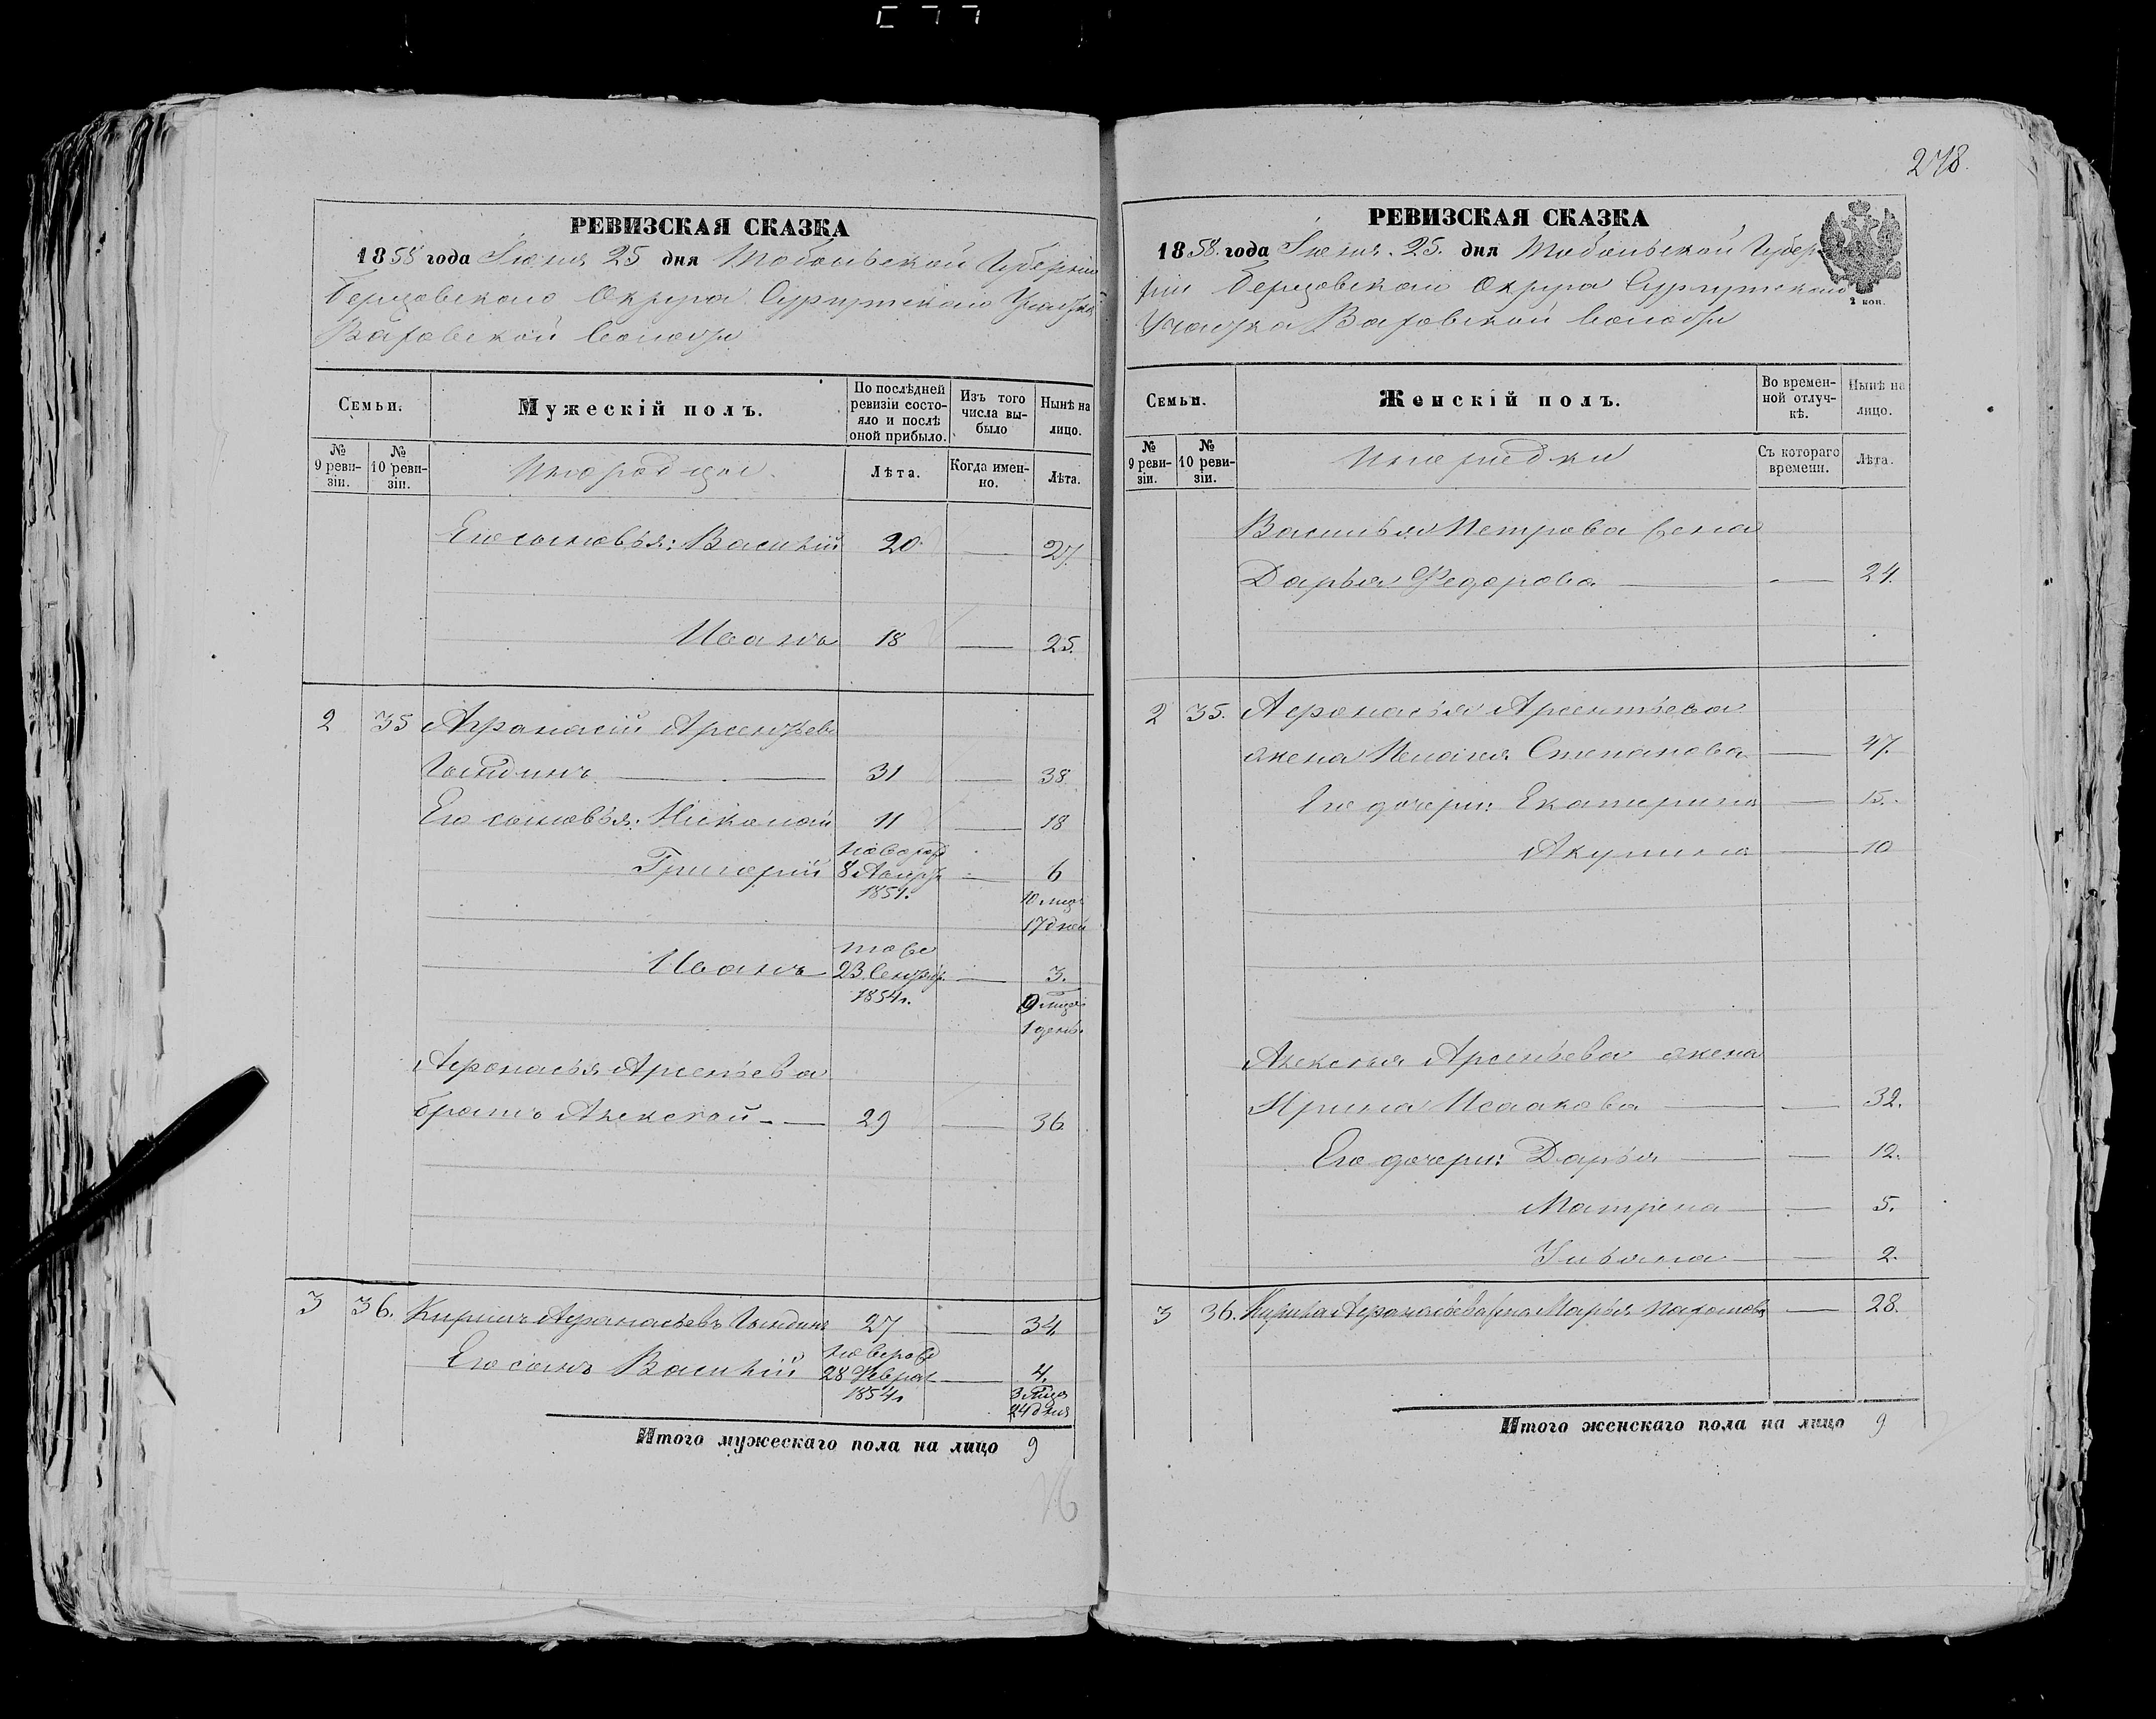 278.
РЕВИЗСКАЯ СКАЗКА
1858 года Іюня 25 дня Тобольской Губерніи
Березовскаго Округа Сургутскаго Участка
Ваховской Волости
Семьи.
Мужескій полъ.
По послѣдней ревизіи состояло и послѣ оной прибыло.
Изъ того числа выбыло
Нынѣ на лицо.
№ 9 ревизіи.
№ 10 ревизіи.
Инородцы
Лѣта.
Когда именно.
Лѣта.
Его сыновья: Василій 20. — 27.
Иванъ 18 — 25.
2 35 Афанасій Арсентьевъ
31 — 38
Его сыновья: Николай 11 — 18
новорож
Григорій 8 Августа — 6
1851. 10 мцъ
17 дней
тоже
Иванъ 23 Сентяб. — 3.
1854г. 9 мцъ
1 день.
Афанасья Арсеньева
братъ Алексѣй — 29 — 36
3 36. Кирилъ Афанасьевъ 27 — 34.
новорож
Его сынъ Василій 28 Феврал — 4.
1854г 3 мца
24 дня
Итого мужескаго пола на лицо 9
РЕВИЗСКАЯ СКАЗКА
1858. года Іюня. 25. дня Тобольской Губер
ніи Березовскаго Округа Сургутскаго
2 коп.
Участка Ваховской Волости
Семьи.
Женскій полъ.
Во временной отлучкѣ.
Нынѣ на лицо.
№ 9 ревизіи.
№ 10 ревизіи.
Инородки
Съ котораго времени.
Лѣта.
Василья Петрова жена
Дарья Федорова — — 24.
2 35. Афонасья Арсентьева
жена Пелагея Степанова — 47.
Его дочери: Екатерина — 15.
Акулина — 10
Алексѣя Арсеньева жена
Ирина Исаакова — — 32.
Его дочери: Дарья — — 12.
Матрена — — 5.
Ульяна — — 2.
3 36. Кирила Афонасьева жена Марья Пахомова — 28.
Итого женскаго пола на лицо 9